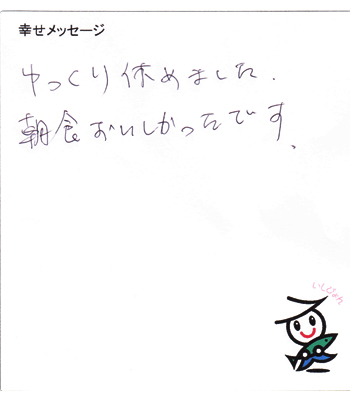 幸せメッセージ
ゆっくり休めました.
朝食おいしかったです、
いしじまん